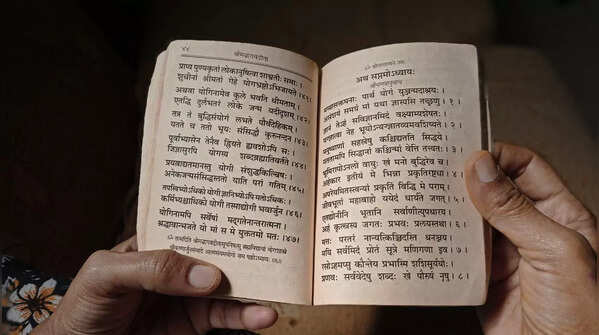 ४४ श्रीमद्भगवद्गीता
प्राप्य पुण्यकृतां लोकानुषित्वा शाश्वतीः समाः ।
शुचीनां श्रीमतां गेहे योगभ्रष्टोऽभिजायते ।४१।
अथवा योगिनामेव कुले भवति धीमताम् ।
एतद्धि दुर्लभतरं लोके जन्म यदीदृशम् ।४२।
तत्र तं बुद्धिसंयोगं लभते पौर्वदेहिकम् ।
यतते च ततो भूयः संसिद्धौ कुरुनन्दन ।४३।
पूर्वाभ्यासेन तेनैव ह्रियते ह्यवशोऽपि सः ।
जिज्ञासुरपि योगस्य शब्दब्रह्मातिवर्तते ।४४।
प्रयत्नाद्यतमानस्तु योगी संशुद्धकिल्बिषः ।
अनेकजन्मसंसिद्धस्ततो याति परां गतिम् ।४५।
तपस्विभ्योऽधिको योगी ज्ञानिभ्योऽपि मतोऽधिकः ।
कर्मिभ्यश्चाधिको योगी तस्माद्योगी भवार्जुन ।४६।
योगिनामपि सर्वेषां मद्गतेनान्तरात्मना ।
श्रद्धावान्भजते यो मां स मे युक्ततमो मतः ।४७।
ॐ तत्सदिति श्रीमद्भगवद्गीतासूपनिषत्सु ब्रह्मविद्यायां योगशास्त्रे
श्रीकृष्णार्जुनसंवादे आत्मसंयमयोगो नाम षष्ठोऽध्यायः
ॐ श्रीपरमात्मने नमः
अथ सप्तमोऽध्यायः
श्रीभगवानुवाच
मय्यासक्तमनाः पार्थ योगं युञ्जन्मदाश्रयः ।
असंशयं समग्रं मां यथा ज्ञास्यसि तच्छृणु । १ ।
ज्ञानं तेऽहं सविज्ञानमिदं वक्ष्याम्यशेषतः ।
यज्ज्ञात्वा नेह भूयोऽन्यज्ज्ञातव्यमवशिष्यते । २ ।
मनुष्याणां सहस्रेषु कश्चिद्यतति सिद्धये ।
यततामपि सिद्धानां कश्चिन्मां वेत्ति तत्त्वतः । ३ ।
भूमिरापोऽनलो वायुः खं मनो बुद्धिरेव च ।
अहंकार इतीयं मे भिन्ना प्रकृतिरष्टधा । ४ ।
अपरेयमितस्त्वन्यां प्रकृतिं विद्धि मे पराम् ।
जीवभूतां महाबाहो ययेदं धार्यते जगत् । ५ ।
एतद्योनीनि भूतानि सर्वाणीत्युपधारय ।
अहं कृत्स्नस्य जगतः प्रभवः प्रलयस्तथा । ६ ।
मत्तः परतरं नान्यत्किञ्चिदस्ति धनञ्जय ।
मयि सर्वमिदं प्रोतं सूत्रे मणिगणा इव । ७ ।
रसोऽहमप्सु कौन्तेय प्रभास्मि शशिसूर्ययोः ।
प्रणवः सर्ववेदेषु शब्दः खे पौरुषं नृषु । ८ ।